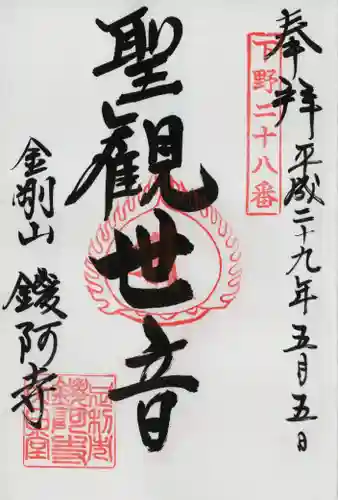 奉拝 平成二十九年五月五日
下野二十八番
聖観世音
金剛山 鑁阿寺